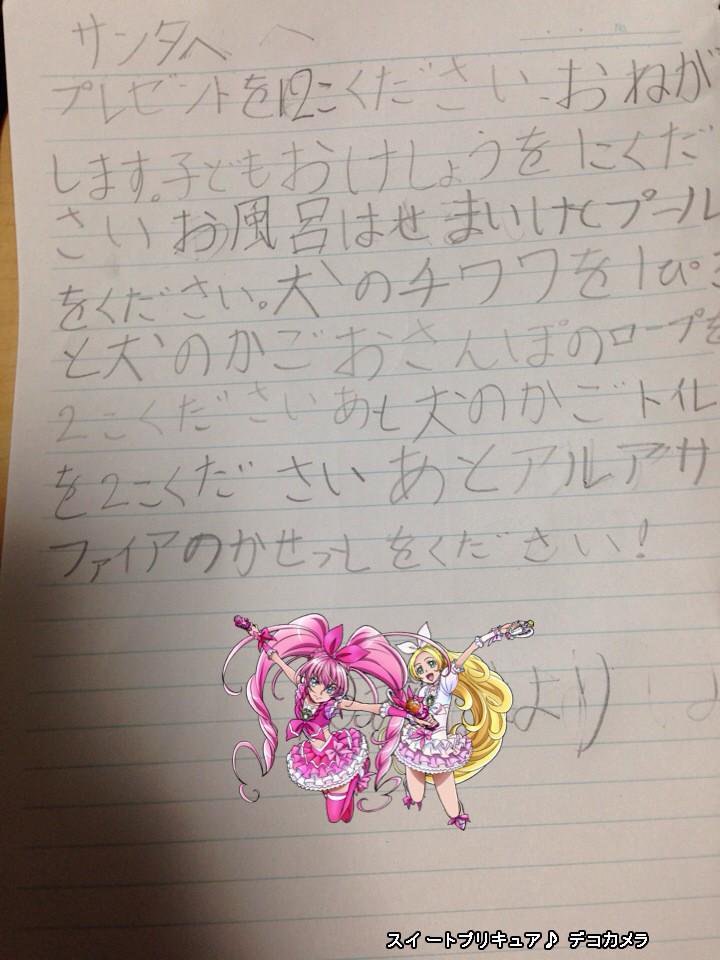 サンタへ
プレゼントを12こください、おねが
します。子どもおけしょうをにくだ
さいお風呂はせまいけとプール
をください。犬のチワワを1ぴき
と犬のかごおさんぽのロープを
2こくださいあと犬のかごトイレ
を2こくださいあとアルアサ
ファイアのかせっとをください!
より
スイートプリキュア♪ デコカメラ